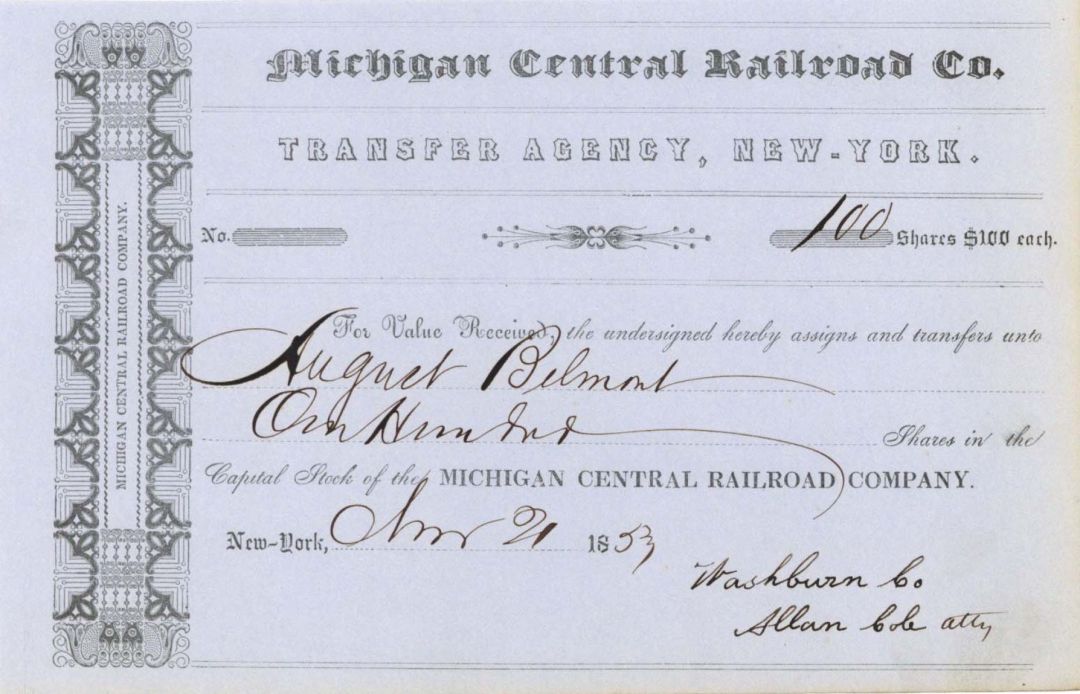 Michigan Central Railroad Co.
TRANSFER AGENCY, NEW-YORK.
No. 100 Shares $100 each.
For Value Received, the undersigned hereby assigns and transfers unto
August Belmont
One Hundred Shares in the
Capital Stock of the MICHIGAN CENTRAL RAILROAD COMPANY.
New-York, Nov 21 1853
Washburn Co
Allan Cole atty
MICHIGAN CENTRAL RAILROAD COMPANY.